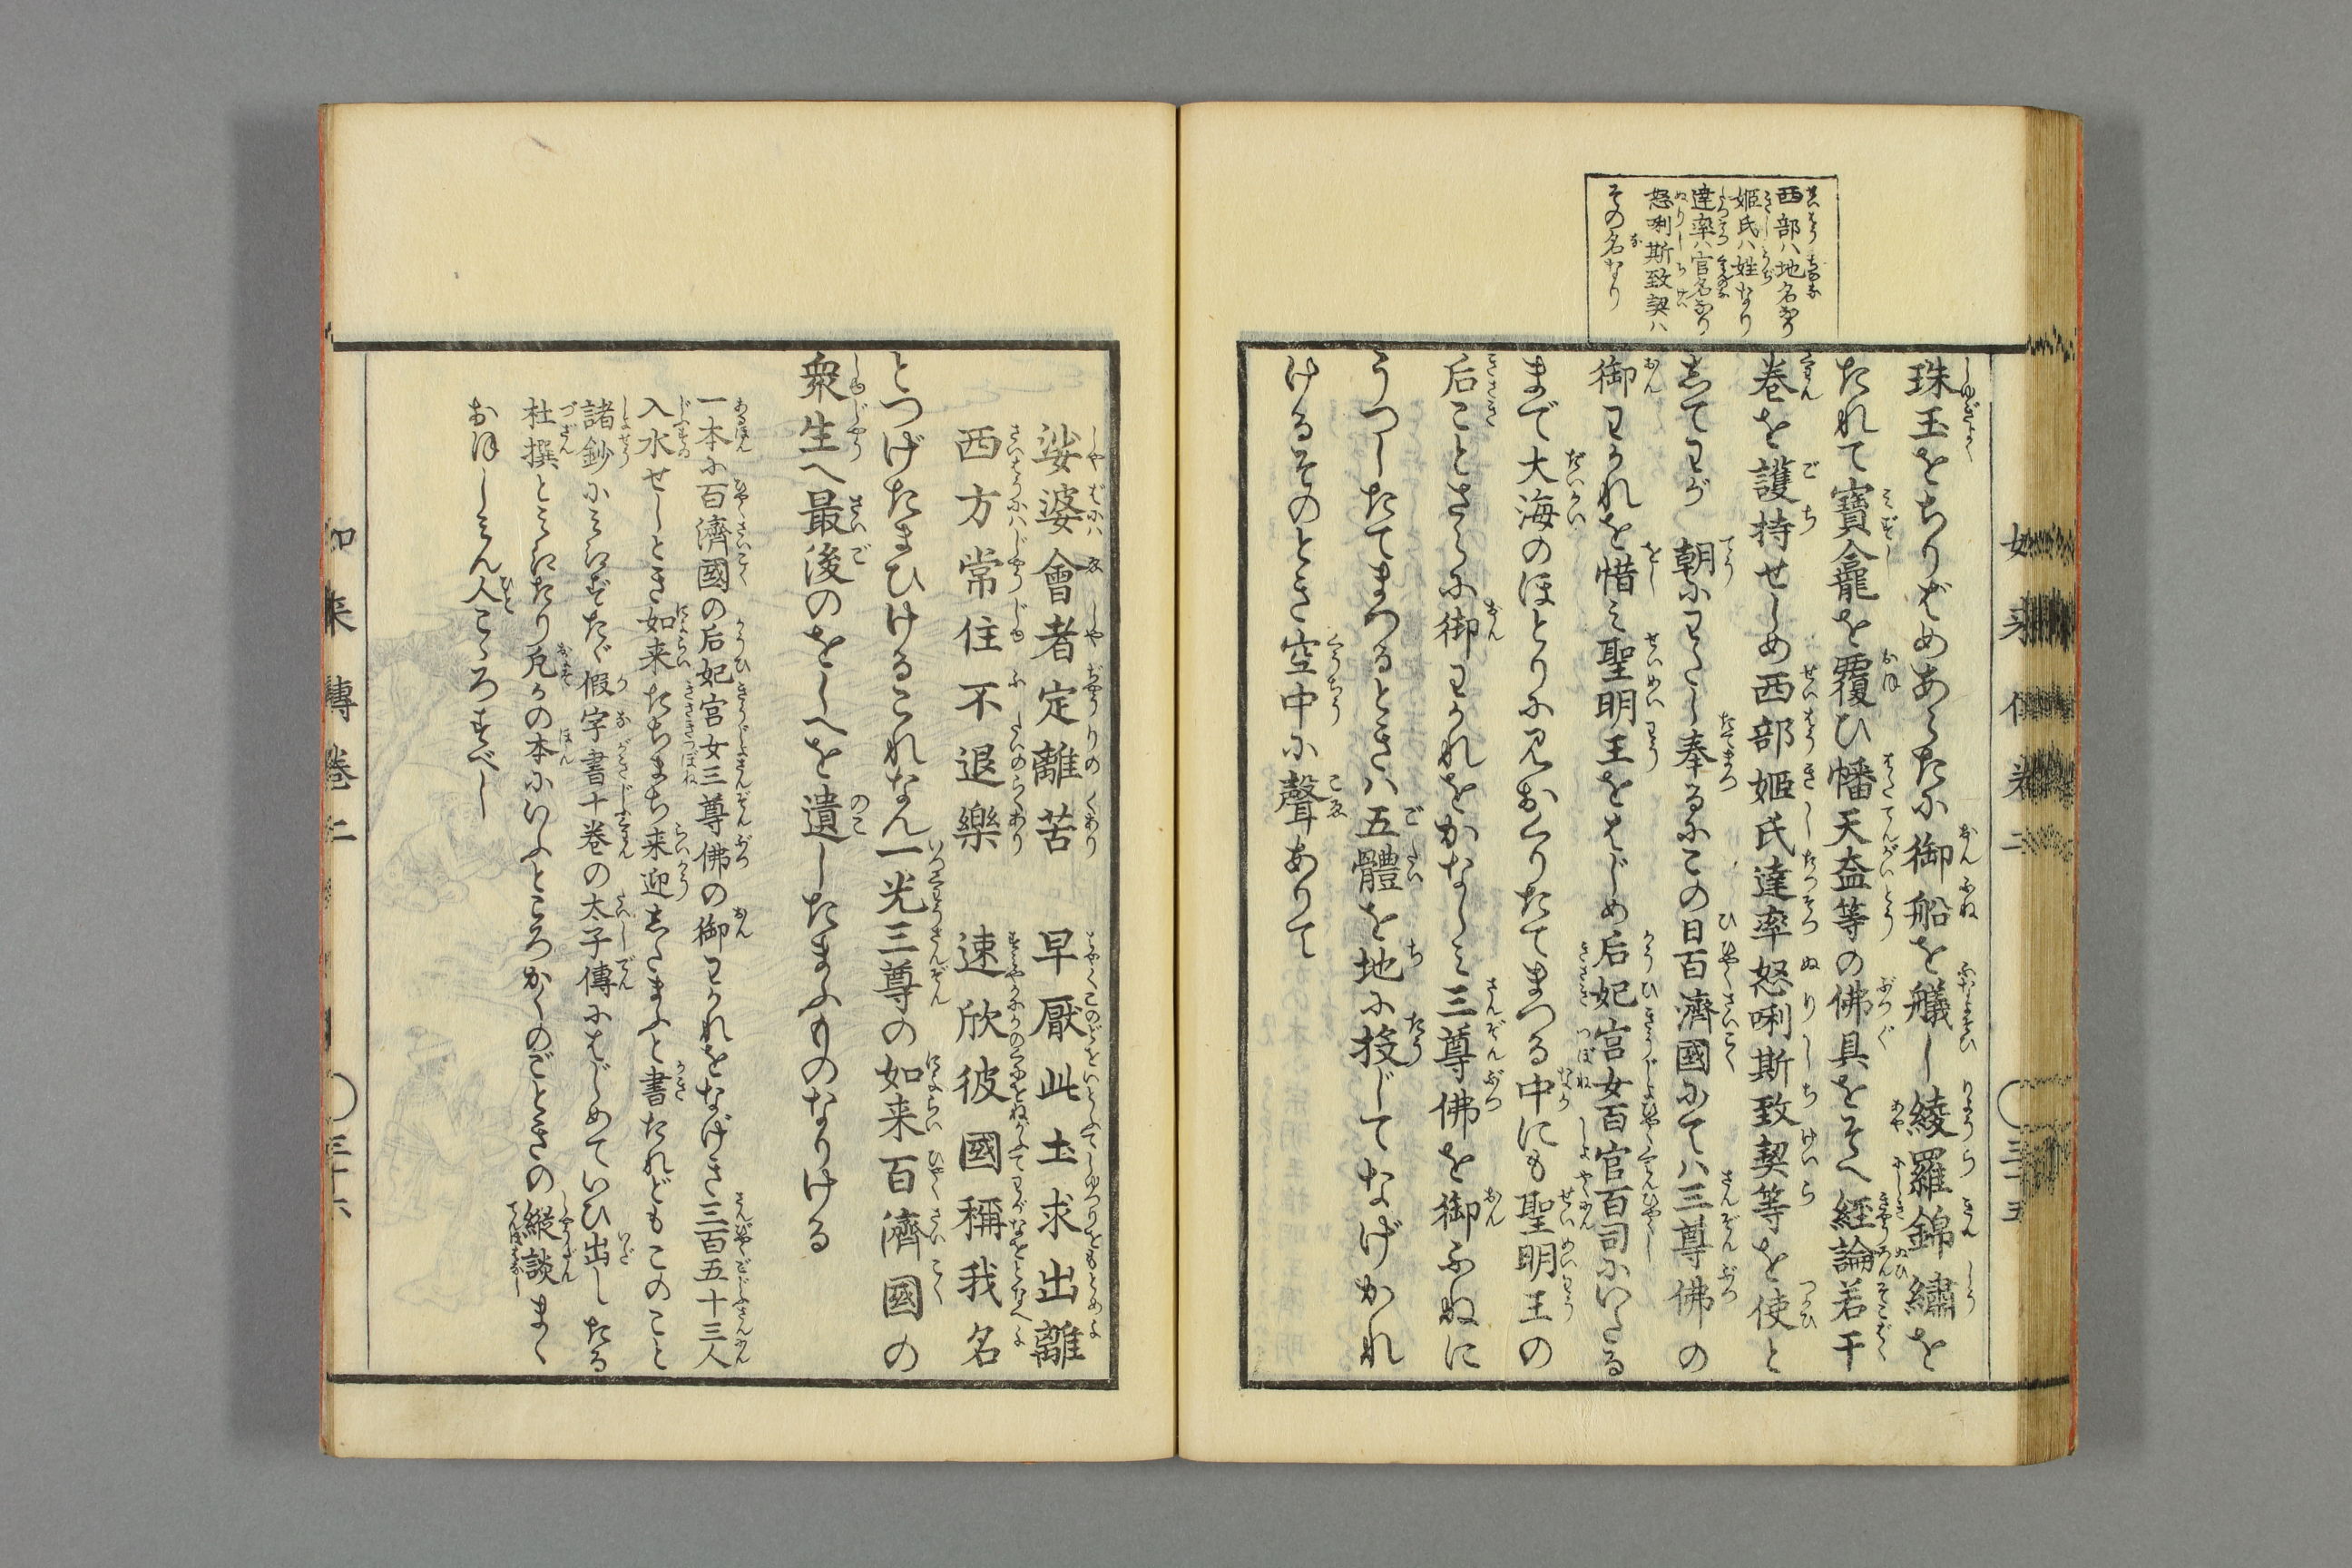 西部ハ地名なり
姫氏ハ姓なり
達率ハ官名なり
怒唎斯致契ハ
その名なり
珠玉をちりばめあらたに御船を艤し綾羅錦繍を
たれて寶龕を覆ひ幡天蓋等の佛具をそへ経論若干
巻を護持せしめ西部姫氏達率怒唎斯致契等を使と
してわが朝にわたし奉るにこの日百濟國にてハ三尊佛の
御わかれを惜ミ聖明王をはじめ后妃宮女百官百司にいたる
まで大海のほとりに見おくりたてまつる中にも聖明王の
后ことさらに御わかれをかなしミ三尊佛を御ふねに
うつしたてまつるときハ五體を地に投じてなげかれ
けるそのとき空中に聲ありて
娑婆會者定離苦　早厭此土求出離
西方常住不退樂　速欣彼國稱我名
とつげたまひけるこれなん一光三尊の如来百濟國の
衆生へ最後のをしへを遺したまふものなりける
一本に百濟國の后妃宮女三尊佛の御わかれをなげき三百五十三人
入水せしとき如来たちまち来迎したまふと書たれどもこのこと
諸鈔にミえずたゞ假字書十巻の太子傳にはじめていひ出したる
杜撰とミえたり凡かの本にいふところかくのごときの縦談まゝ
おほしミん人こゝろすべし
如来傳巻二
三十五
如来傳巻二
三十六